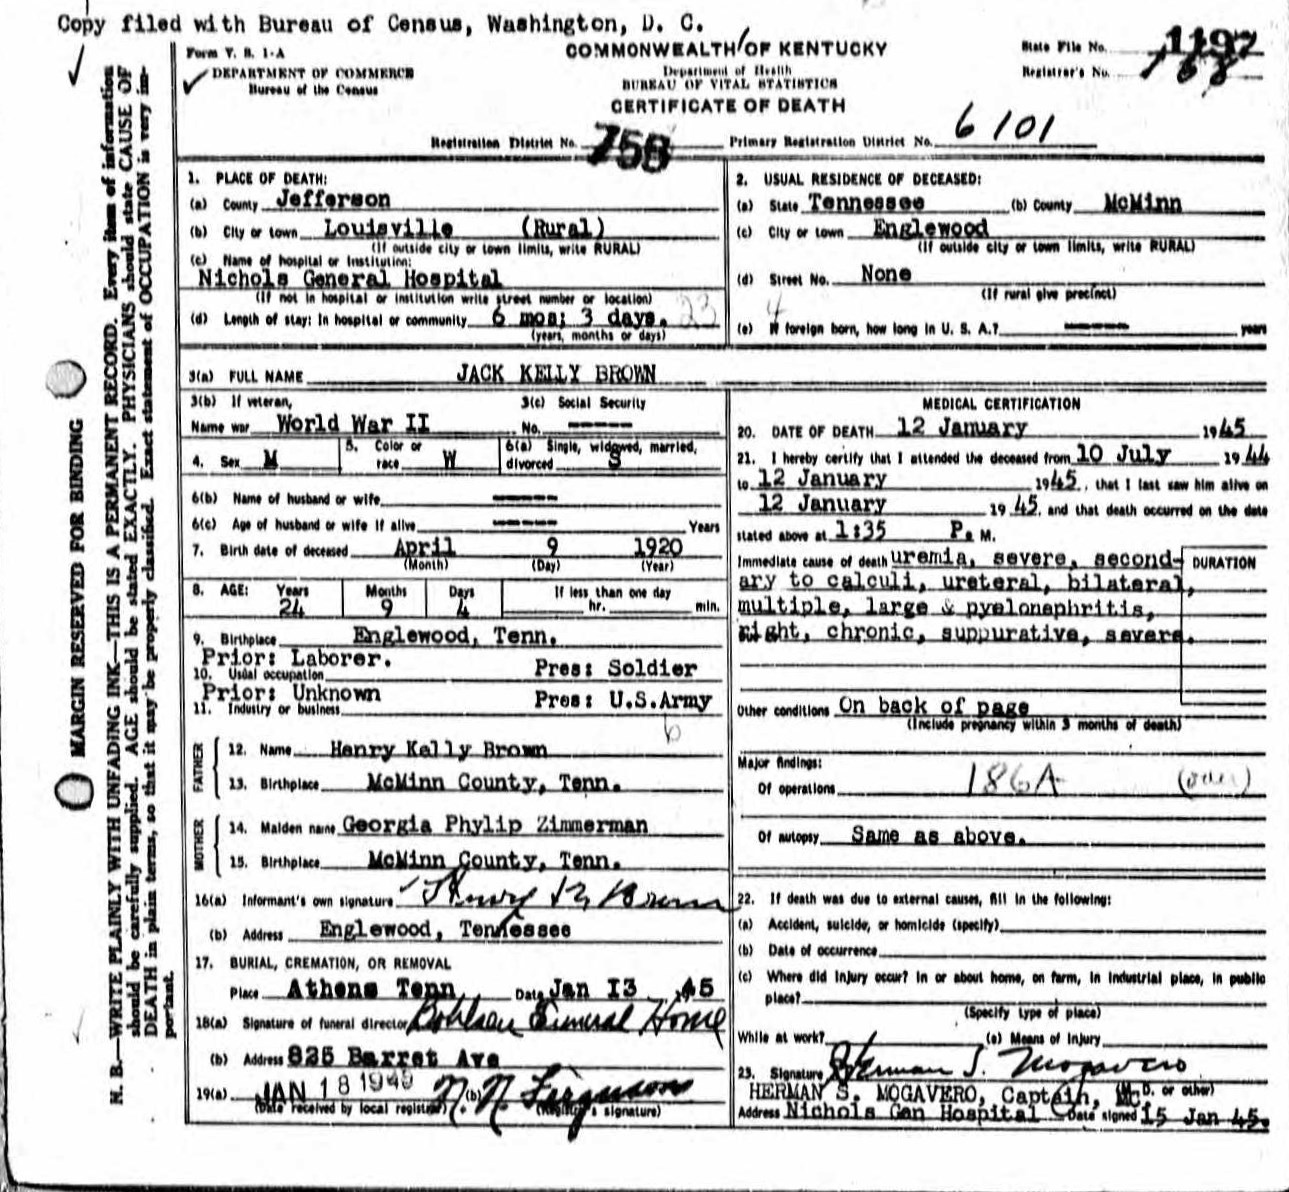 Copy filed with Bureau of Census, Washington, D. C.
Form V. S. 1-A
DEPARTMENT OF COMMERCE
Bureau of the Census
COMMONWEALTH OF KENTUCKY
Department of Health
BUREAU OF VITAL STATISTICS
CERTIFICATE OF DEATH
State File No. 1197
Registrar's No. 168
Registration District No. 758 Primary Registration District No. 6101
MARGIN RESERVED FOR BINDING
N. B.—WRITE PLAINLY WITH UNFADING INK—THIS IS A PERMANENT RECORD. Every item of information
should be carefully supplied. AGE should be stated EXACTLY. PHYSICIANS should state CAUSE OF
DEATH in plain terms, so that it may be properly classified. Exact statement of OCCUPATION is very im-
portant.
1. PLACE OF DEATH:
(a) County Jefferson
(b) City or town Louisville (Rural)
(If outside city or town limits, write RURAL)
(c) Name of hospital or institution:
Nichols General Hospital
(If not in hospital or institution write street number or location)
(d) Length of stay: In hospital or community 6 mos; 3 days. 23
(years, months or days)
2. USUAL RESIDENCE OF DECEASED:
(a) State Tennessee (b) County McMinn
(c) City or town Englewood
(If outside city or town limits, write RURAL)
(d) Street No. None
(If rural give precinct)
4
(e) If foreign born, how long in U. S. A.? ----- years
3(a) FULL NAME JACK KELLY BROWN
3(b) If veteran, 3(c) Social Security
Name war World War II No. -----
4. Sex M 5. Color or race W 6(a) Single, widowed, married, divorced S
6(b) Name of husband or wife -----
6(c) Age of husband or wife if alive ----- Years
7. Birth date of deceased April 9 1920
(Month) (Day) (Year)
8. AGE: Years Months Days If less than one day
24 9 4 hr. min.
9. Birthplace Englewood, Tenn.
Prior: Laborer. Pres: Soldier
10. Usual occupation
Prior: Unknown Pres: U.S.Army
11. Industry or business
FATHER
12. Name Henry Kelly Brown
13. Birthplace McMinn County, Tenn.
MOTHER
14. Maiden name Georgia Phylip Zimmerman
15. Birthplace McMinn County, Tenn.
16(a) Informant's own signature Henry K. Brown
(b) Address Englewood, Tennessee
17. BURIAL, CREMATION, OR REMOVAL
Place Athens Tenn Date Jan I3 45
18(a) Signature of funeral director Bohlsen Funeral Home
(b) Address 825 Barret Ave
19(a) JAN 18 1945 (b) N. N. Ferguson
(Date received by local registrar) (Registrar's signature)
MEDICAL CERTIFICATION
20. DATE OF DEATH 12 January 1945
21. I hereby certify that I attended the deceased from 10 July 1944
to 12 January 1945, that I last saw him alive on
12 January 1945, and that death occurred on the date
stated above at 1:35 P. M.
Immediate cause of death uremia, severe, second- DURATION
ary to calculi, ureteral, bilateral,
multiple, large & pyelonephritis,
right, chronic, suppurative, severe.
Other conditions On back of page
(Include pregnancy within 3 months of death)
Major findings:
Of operations 186A (over)
Of autopsy Same as above.
22. If death was due to external causes, fill in the following:
(a) Accident, suicide, or homicide (specify)
(b) Date of occurrence
(c) Where did injury occur? In or about home, on farm, in industrial place, in public
place?
(Specify type of place)
While at work? (e) Means of Injury
23. Signature Herman S. Mogavero
HERMAN S. MOGAVERO, Captain, MC (M. D. or other)
Address Nichols Gen Hospital Date signed 15 Jan 45.